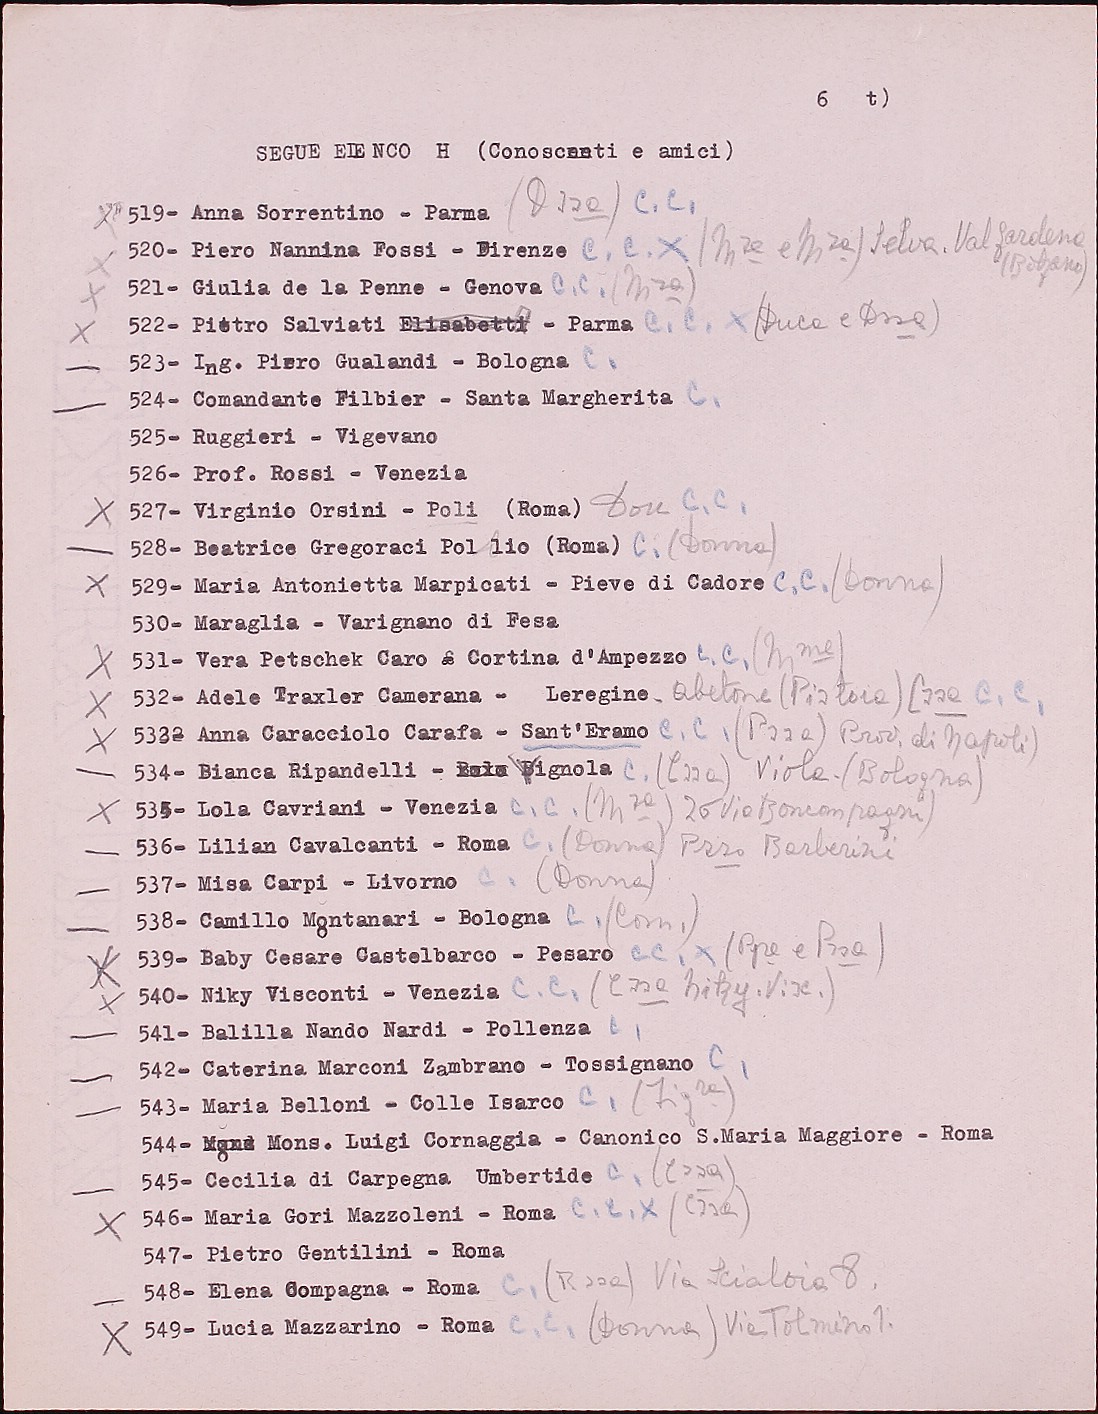 6 t)
SEGUE ELENCO H (Conoscenti e amici)
519- Anna Sorrentino - Parma (Dssa) C.C.
520- Piero Nannina Fossi - Firenze C.C. X (Mse e Msa) Selva. Val Gardena (Bolzano)
521- Giulia de la Penne - Genova C.C. (Msa)
522- Pietro Salviati Elisabetti - Parma C.C. X (Duca e Dssa)
523- Ing. Piero Gualandi - Bologna C.
524- Comandante Filbier - Santa Margherita C.
525- Ruggieri - Vigevano
526- Prof. Rossi - Venezia
527- Virginio Orsini - Poli (Roma) Don C.C.
528- Beatrice Gregoraci Pollio (Roma) C. (Donna)
529- Maria Antonietta Marpicati - Pieve di Cadore C.C. (Donna)
530- Maraglia - Varignano di Fesa
531- Vera Petschek Caro & Cortina d'Ampezzo C.C. (Mme)
532- Adele Traxler Camerana - Leregine - Abetone (Pistoia) Cssa C.C.
533- Anna Caracciolo Carafa - Sant'Eramo C.C. (Pssa) Prov. di Napoli)
534- Bianca Ripandelli - Vignola C. (Cssa) Viola - (Bologna)
535- Lola Cavriani - Venezia C.C. (Msa) 26 Via Boncompagni)
536- Lilian Cavalcanti - Roma C. (Donna) Pzzo Barberini
537- Misa Carpi - Livorno C. (Donna)
538- Camillo Montanari - Bologna C. (Com.)
539- Baby Cesare Castelbarco - Pesaro CC. X (Ppe e Pssa)
540- Niky Visconti - Venezia C.C. (Cssa Nitzy. Visc.)
541- Balilla Nando Nardi - Pollenza C.
542- Caterina Marconi Zambrano - Tossignano C.
543- Maria Belloni - Colle Isarco C. (Sigra)
544- Mons. Luigi Cornaggia - Canonico S.Maria Maggiore - Roma
545- Cecilia di Carpegna Umbertide C. (Cssa)
546- Maria Gori Mazzoleni - Roma C.C. X (Cssa)
547- Pietro Gentilini - Roma
548- Elena Compagna - Roma C. (Bssa) Via Scialoia 8.
549- Lucia Mazzarino - Roma C.C. (Donna) Via Tolmino 1.